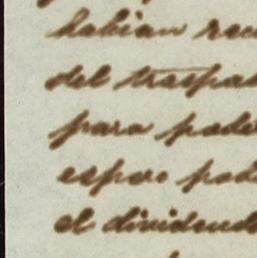 habian rec
del traspas
para pode
espero pod
el dividend